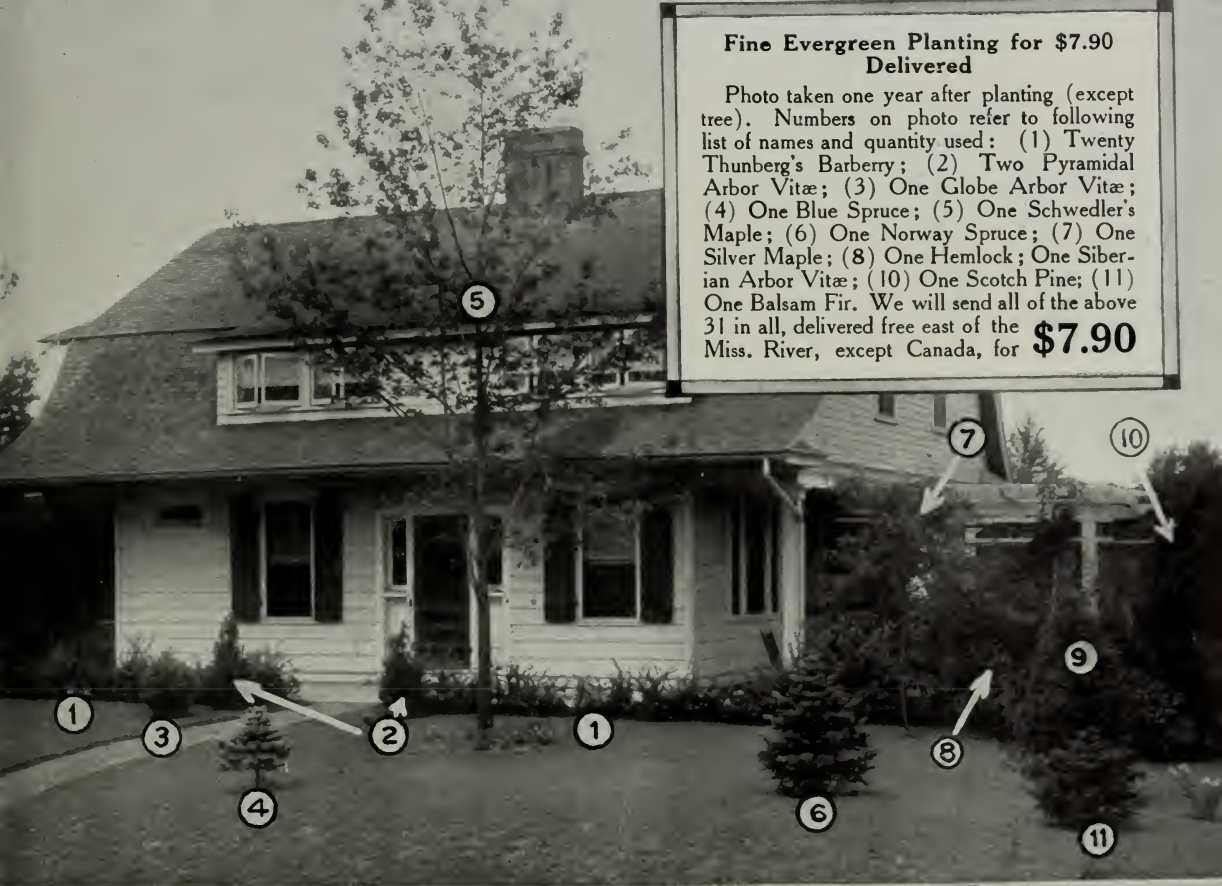 Fine Evergreen Planting for $7.90
Delivered
Photo taken one year after planting (except
tree). Numbers on photo refer to following
list of names and quantity used: (1) Twenty
Thunberg's Barberry; (2) Two Pyramidal
Arbor Vitæ; (3) One Globe Arbor Vitæ;
(4) One Blue Spruce; (5) One Schwedler's
Maple; (6) One Norway Spruce; (7) One
Silver Maple; (8) One Hemlock; One Siber-
ian Arbor Vitæ; (10) One Scotch Pine; (11)
One Balsam Fir. We will send all of the above
31 in all, delivered free east of the
Miss. River, except Canada, for $7.90
5
7
10
9
1
3
2
1
8
4
6
11